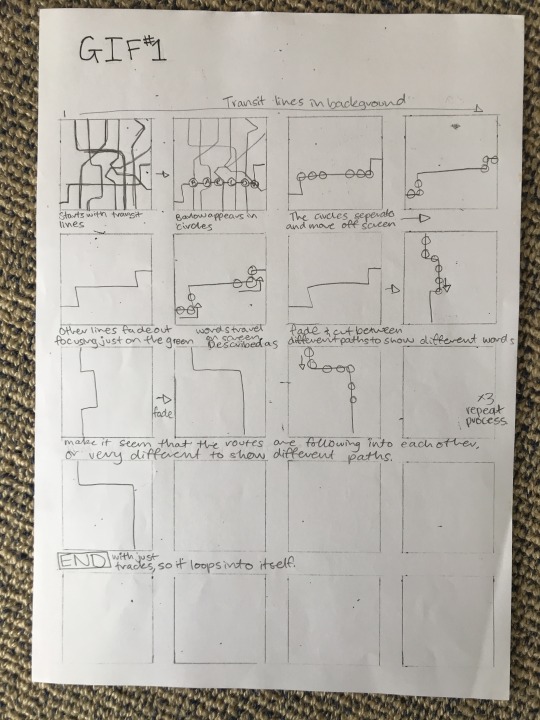 GIF #1
Transit lines in background
Starts with transit
lines
Barlow appears in
circles
The circles seperate
and move off screen
Other lines fade out
focusing just on the green
words travel
on screen
Described as
fade & cut between
different paths to show different words
fade
x3
repeat
process
make it seem that the routes are following into each other,
or very different to show different paths.
END with just
tracks, so it loops into itself.